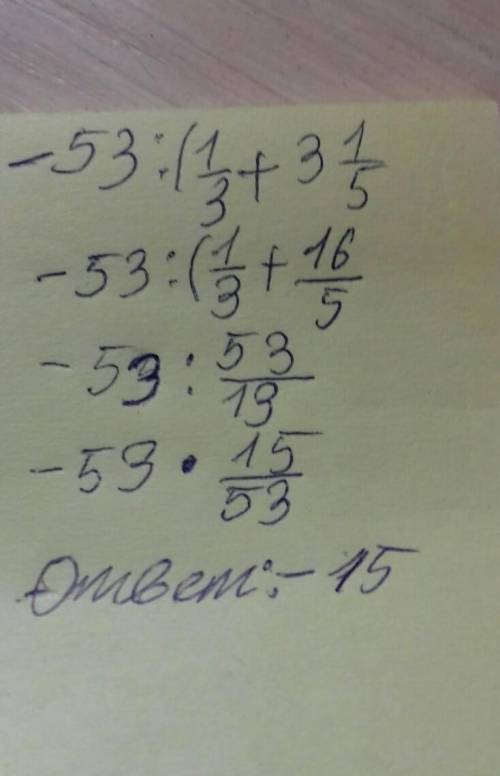 -53:(1/3+3 1/5
-53:(1/3+16/5
-53:53/13
-53·15/53
Ответ:-15